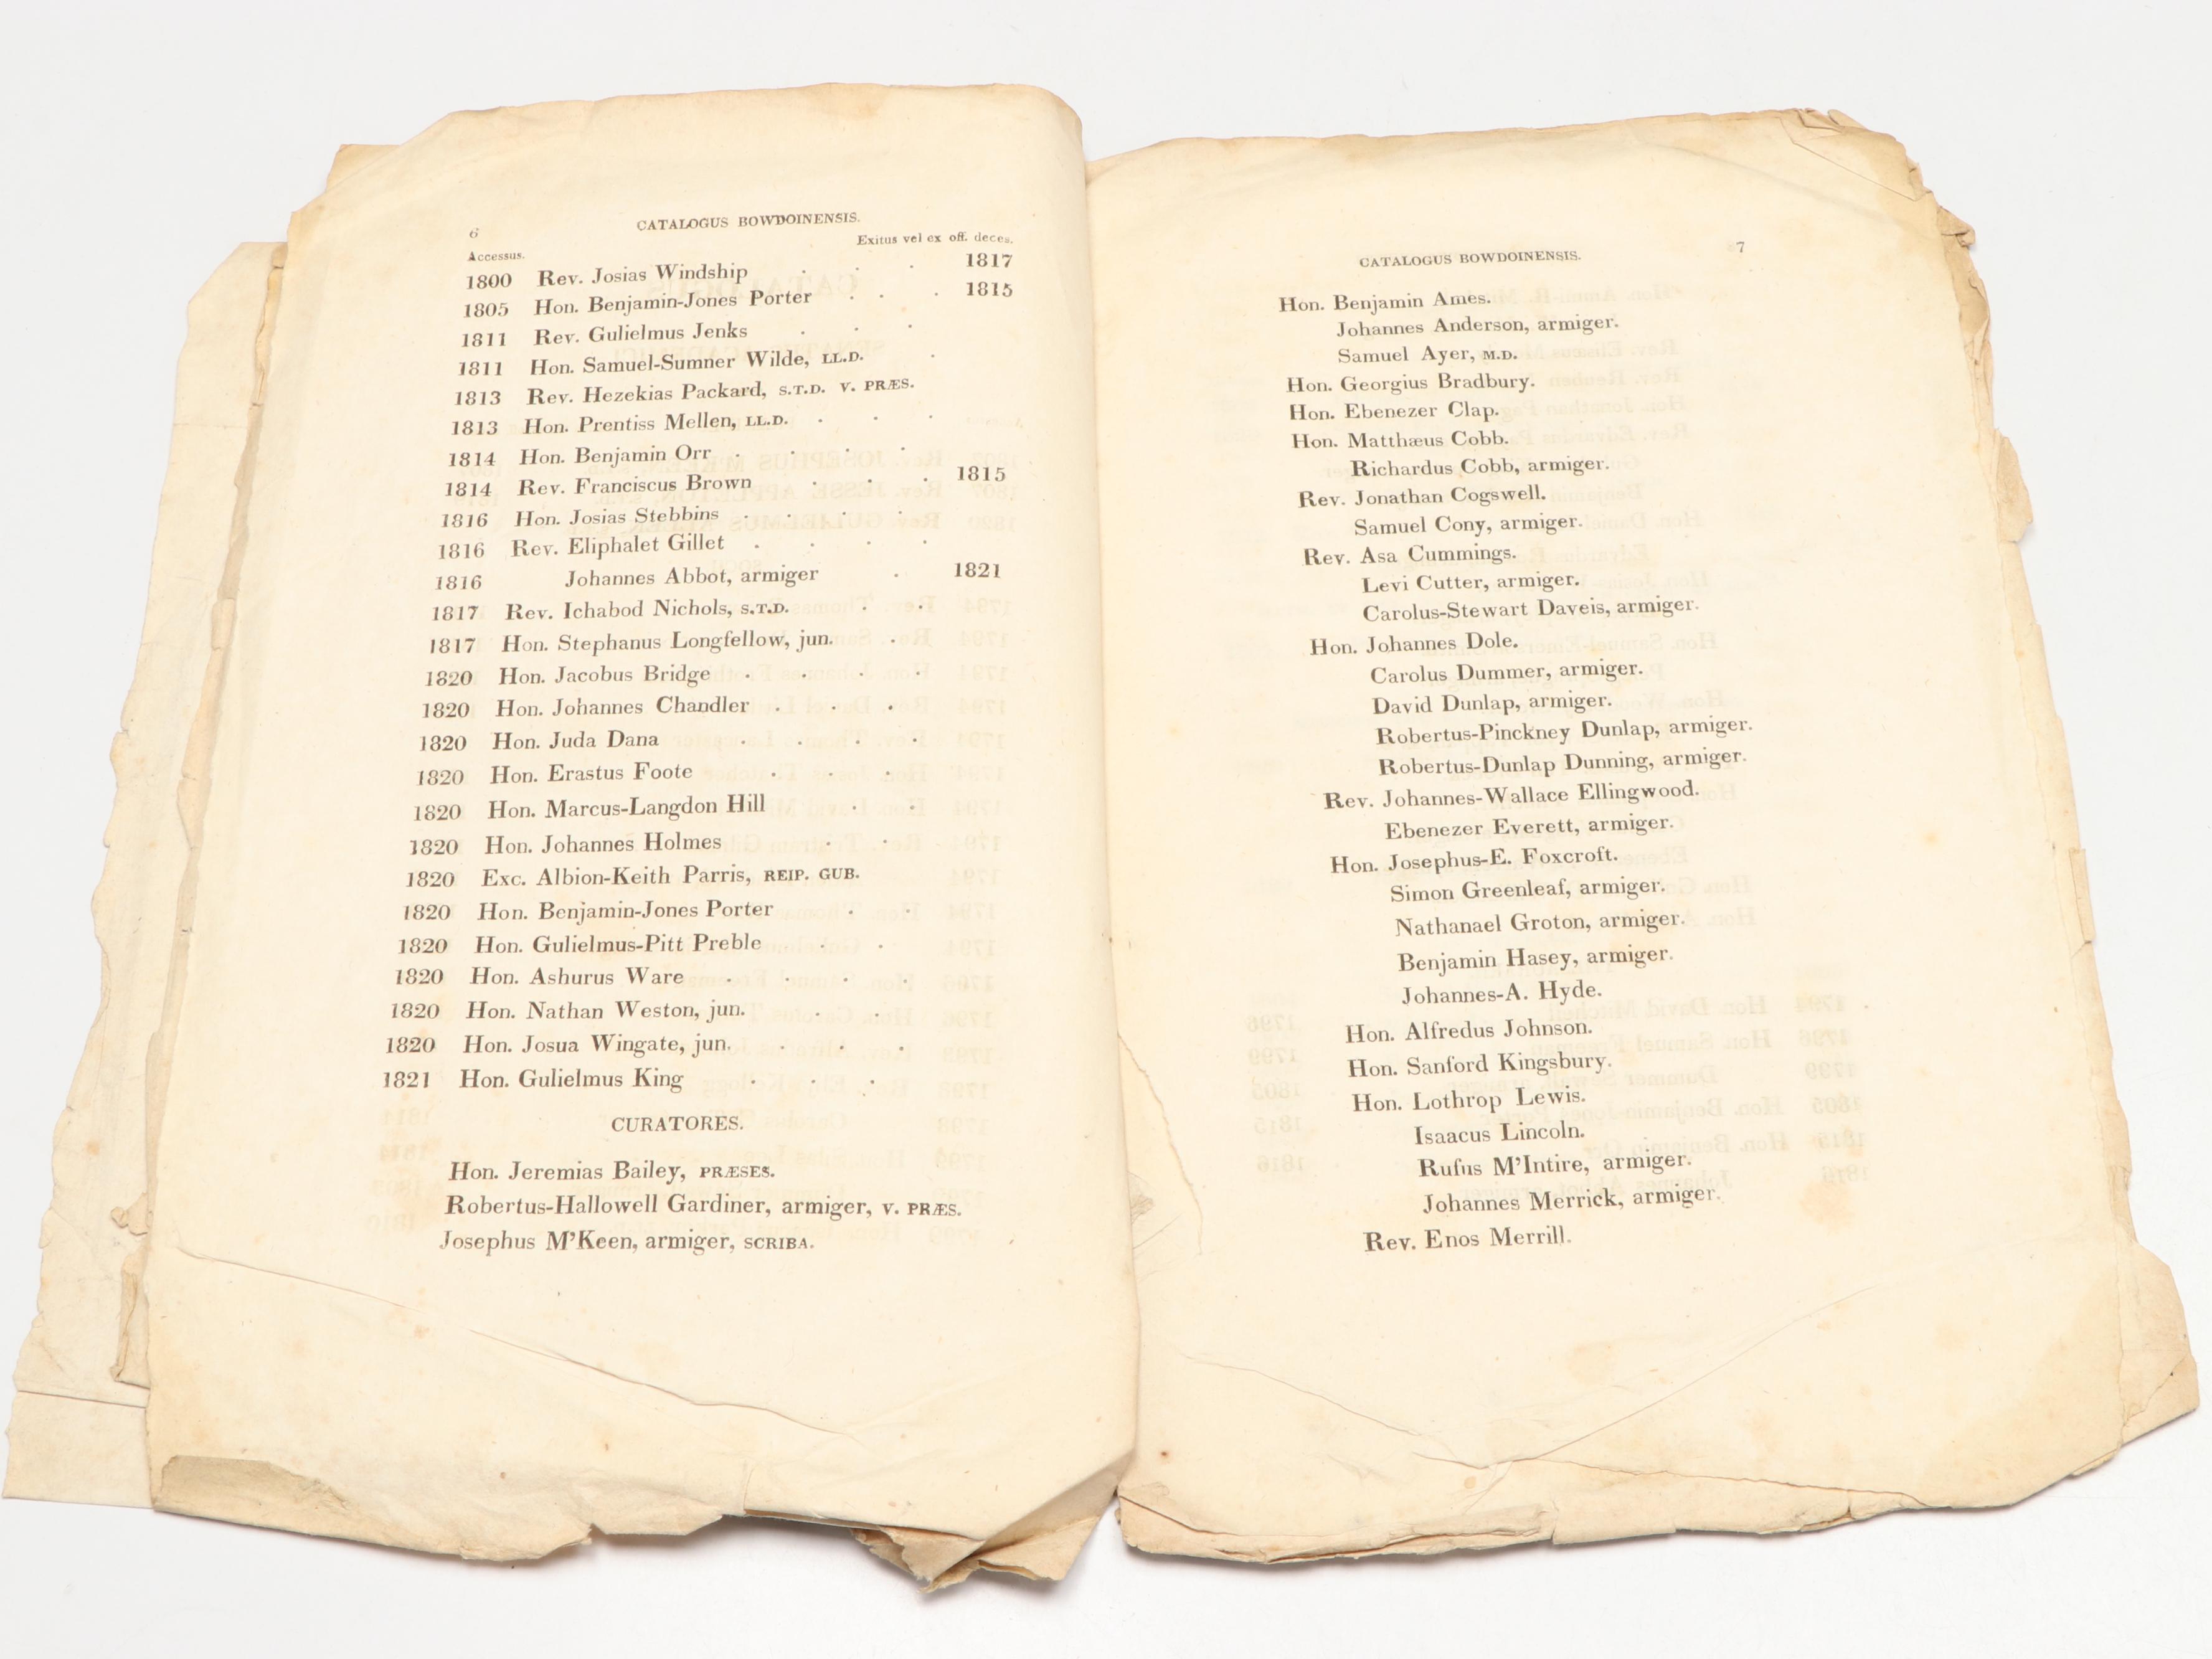 6
CATALOGUS BOWDOINENSIS.
Accessus. Exitus vel ex off. deces.
1800 Rev. Josias Windship . . . 1817
1805 Hon. Benjamin-Jones Porter . . . 1815
1811 Rev. Gulielmus Jenks . . .
1811 Hon. Samuel-Sumner Wilde, LL.D. .
1813 Rev. Hezekias Packard, S.T.D. V. PRÆS.
1813 Hon. Prentiss Mellen, LL.D. . . .
1814 Hon. Benjamin Orr . . . .
1814 Rev. Franciscus Brown . . . 1815
1816 Hon. Josias Stebbins . . . .
1816 Rev. Eliphalet Gillet . . . .
1816 Johannes Abbot, armiger . 1821
1817 Rev. Ichabod Nichols, S.T.D. . .
1817 Hon. Stephanus Longfellow, jun. .
1820 Hon. Jacobus Bridge . . . .
1820 Hon. Johannes Chandler . . .
1820 Hon. Juda Dana . . . .
1820 Hon. Erastus Foote . . .
1820 Hon. Marcus-Langdon Hill . .
1820 Hon. Johannes Holmes . .
1820 Exc. Albion-Keith Parris, REIP. GUB.
1820 Hon. Benjamin-Jones Porter . .
1820 Hon. Gulielmus-Pitt Preble . .
1820 Hon. Ashurus Ware . . . .
1820 Hon. Nathan Weston, jun. . .
1820 Hon. Josua Wingate, jun. . . .
1821 Hon. Gulielmus King . . .
CURATORES.
Hon. Jeremias Bailey, PRÆSES.
Robertus-Hallowell Gardiner, armiger, V. PRÆS.
Josephus M'Keen, armiger, SCRIBA.
CATALOGUS BOWDOINENSIS.
7
Hon. Benjamin Ames.
Johannes Anderson, armiger.
Samuel Ayer, M.D.
Hon. Georgius Bradbury.
Hon. Ebenezer Clap.
Hon. Matthæus Cobb.
Richardus Cobb, armiger.
Rev. Jonathan Cogswell.
Samuel Cony, armiger.
Rev. Asa Cummings.
Levi Cutter, armiger.
Carolus-Stewart Daveis, armiger.
Hon. Johannes Dole.
Carolus Dummer, armiger.
David Dunlap, armiger.
Robertus-Pinckney Dunlap, armiger.
Robertus-Dunlap Dunning, armiger.
Rev. Johannes-Wallace Ellingwood.
Ebenezer Everett, armiger.
Hon. Josephus-E. Foxcroft.
Simon Greenleaf, armiger.
Nathanael Groton, armiger.
Benjamin Hasey, armiger.
Johannes-A. Hyde.
Hon. Alfredus Johnson.
Hon. Sanford Kingsbury.
Hon. Lothrop Lewis.
Isaacus Lincoln.
Rufus M'Intire, armiger.
Johannes Merrick, armiger.
Rev. Enos Merrill.